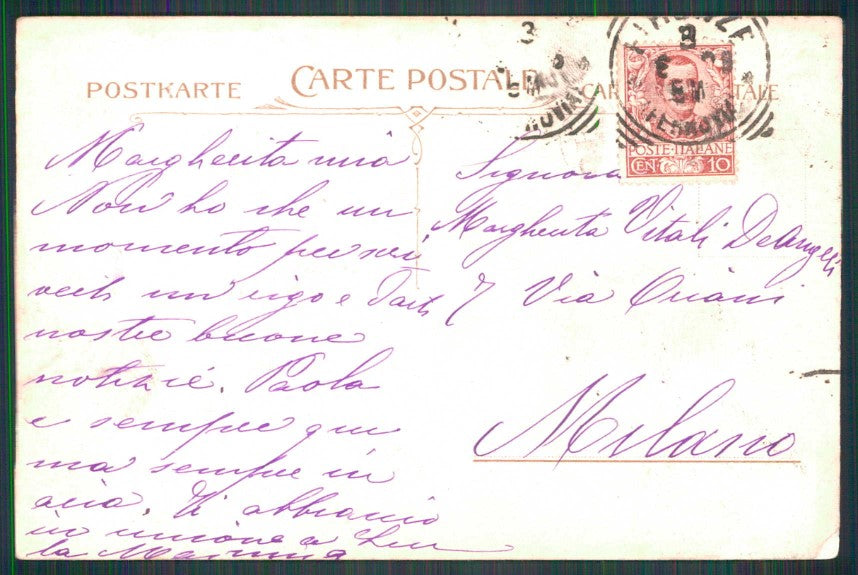 POSTKARTE
CARTE POSTALE
FIRENZE
8
5M
FERROVIA
POSTE · ITALIANE
CEN 10
Margherita mia
Non ho che un
momento per scri
verti un rigo e darti
nostre buone
notizie. Paola
e sempre qui
ma sempre in
aria. Ti abbraccio
in unione a
la Mamma
Signora
Margherita Vitali DeAngeli
7 Via Oriani
Milano